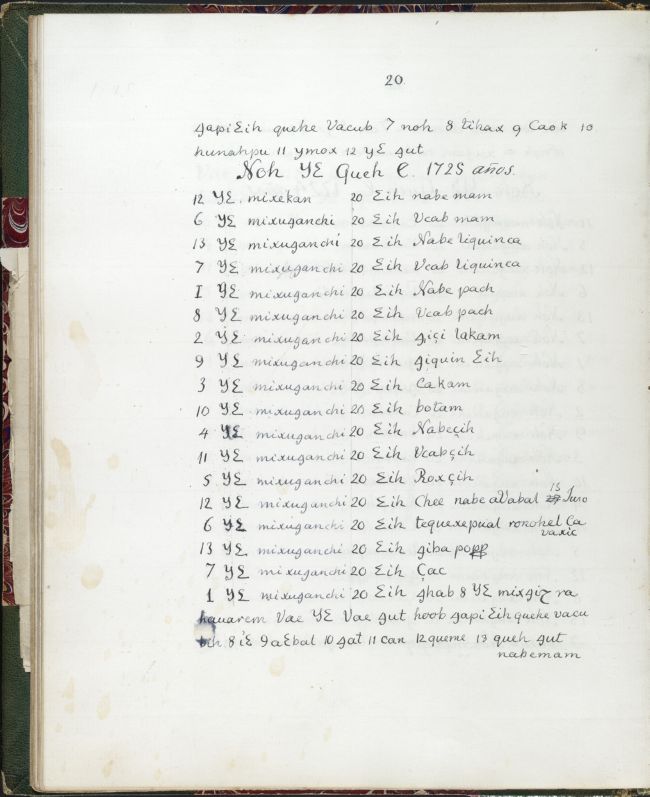 20
gapiƐih quehe Vacub 7 noh 8 tihax 9 Caok 10
hunahpu 11 ymox 12 yƐ gut
Noh YƐ Queh C. 1725 años.
12 YƐ mixekan 20 Ɛih nabe mam
6 YƐ mixuganchi 20 Ɛih Vcab mam
13 YƐ mixuganchi 20 Ɛih Nabe liquinca
7 YƐ mixuganchi 20 Ɛih Vcab liquinca
I YƐ mixuganchi 20 Ɛih Nabe pach
8 YƐ mixuganchi 20 Ɛih Vcab pach
2 YƐ mixuganchi 20 Ɛih giçi lakam
9 YƐ mixuganchi 20 Ɛih giquin Ɛih
3 YƐ mixuganchi 20 Ɛih Cakam
10 YƐ mixuganchi 20 Ɛih botam
4 YƐ mixuganchi 20 Ɛih Nabeçih
11 YƐ mixuganchi 20 Ɛih Vcabçih
5 YƐ mixuganchi 20 Ɛih Roxçih
12 YƐ mixuganchi 20 Ɛih Chee nabe aVabal 13 Juro
6 YƐ mixuganchi 20 Ɛih tequexepual roxohel Ca
vaxic
13 YƐ mixuganchi 20 Ɛih giba popp
7 YƐ mixuganchi 20 Ɛih Çac
1 YƐ mixuganchi 20 Ɛih ghab 8 YƐ mixgiz ra
hauarem Vae YƐ Vae gut hoob gapiƐih quehe vacu
8 iƐ 9 aƐbal 10 gat 11 can 12 queme 13 queh gut
nabemam